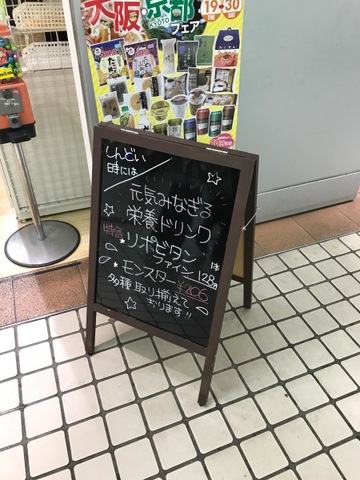 大阪・京都
KYOTO
フェア
19 30
TUE SAT
しんどい
時には
元気みなぎる
栄養ドリンク
特価 リポビタン
ファイン 1本 128円
モンスター ¥206
多種取り揃えて
おります!!